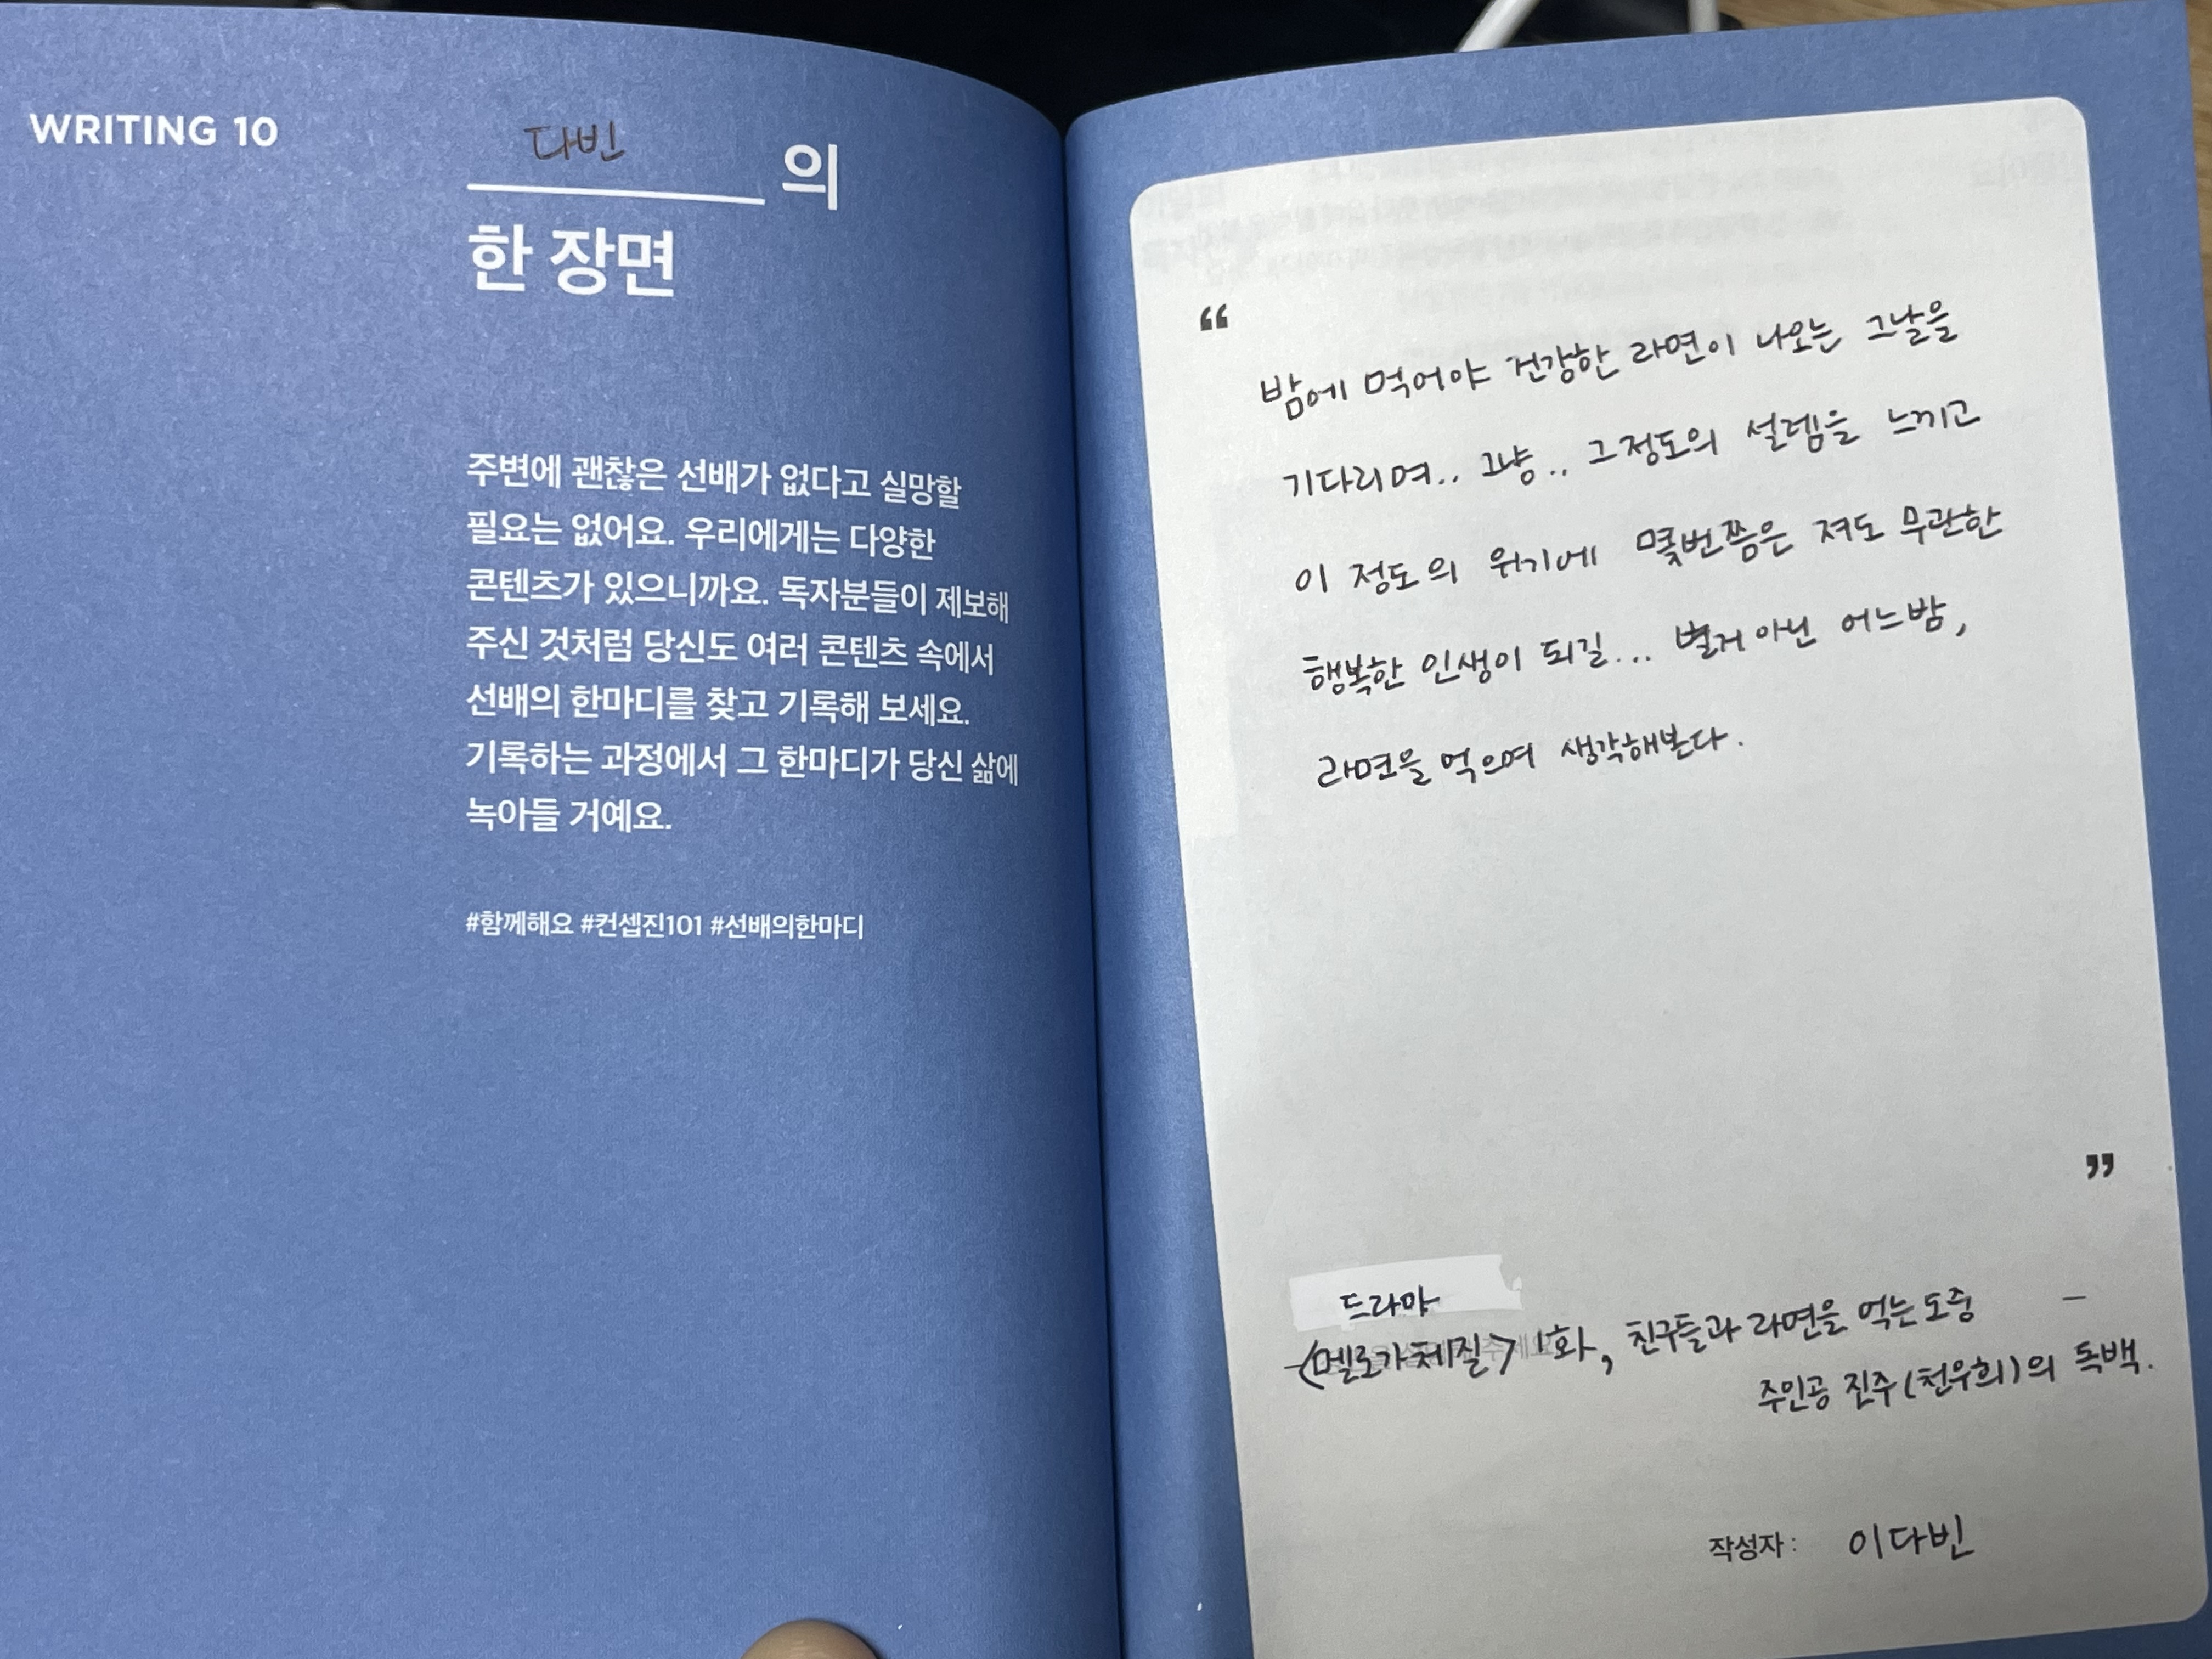 WRITING 10
다빈 의
한 장면
주변에 괜찮은 선배가 없다고 실망할
필요는 없어요. 우리에게는 다양한
콘텐츠가 있으니까요. 독자분들이 제보해
주신 것처럼 당신도 여러 콘텐츠 속에서
선배의 한마디를 찾고 기록해 보세요.
기록하는 과정에서 그 한마디가 당신 삶에
녹아들 거예요.
#함께해요 #컨셉진101 #선배의한마디
“
밤에 먹어야 건강한 라면이 나오는 그날을
기다리며.. 그냥.. 그정도의 설렘을 느끼고
이 정도의 위기에 몇번쯤은 져도 무관한
행복한 인생이 되길... 별거아닌 어느밤,
라면을 먹으며 생각해본다.
”
드라마
-<멜로가체질> 1화, 친구들과 라면을 먹는도중 -
주인공 진주(천우희)의 독백.
작성자 : 이다빈